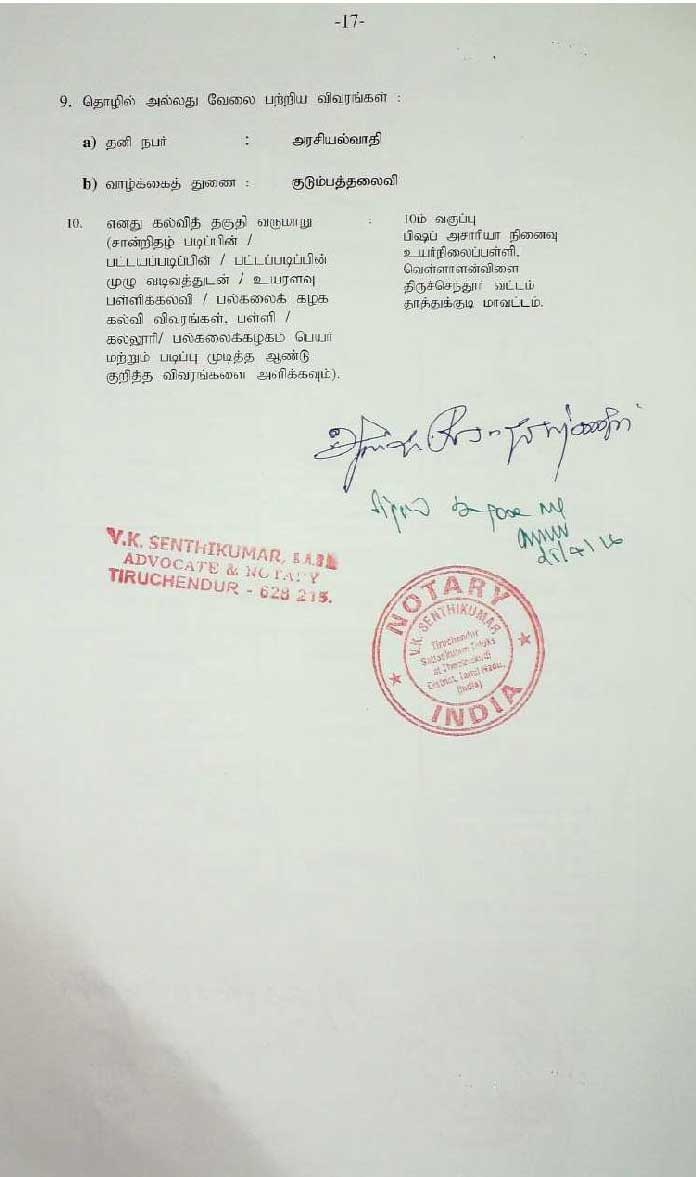 -17-
9. தொழில் அல்லது வேலை பற்றிய விவரங்கள் :
a) தனி நபர் : அரசியல்வாதி
b) வாழ்க்கைத் துணை : குடும்பத்தலைவி
10. எனது கல்வித் தகுதி வருமாறு : 10ம் வகுப்பு
(சான்றிதழ் படிப்பின் / பிஷப் அசாரியா நினைவு
பட்டயப்படிப்பின் / பட்டப்படிப்பின் உயர்நிலைப்பள்ளி,
முழு வடிவத்துடன் / உயரளவு வெள்ளாளன்விளை
பள்ளிக்கல்வி / பல்கலைக் கழக திருச்செந்தூர் வட்டம்
கல்வி விவரங்கள், பள்ளி / தூத்துக்குடி மாவட்டம்.
கல்லூரி/ பல்கலைக்கழகம் பெயர்
மற்றும் படிப்பு முடித்த ஆண்டு
குறித்த விவரங்களை அளிக்கவும்).
V.K. SENTHIKUMAR, B.A.B.L
ADVOCATE & NOTARY
TIRUCHENDUR - 628 215.
NOTARY
V.K. SENTHIKUMAR
Tiruchendur
District, Tamil Nadu,
(India)
INDIA